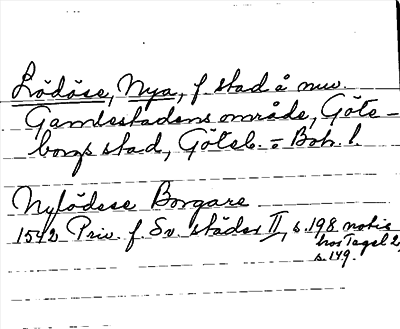 Lödöse, Nya, f. stad å nuv.
Gamlestadens område, Göte-
borgs stad, Göteb. = Boh. l.
Nylödese Borgare
1542 Priv. f. Sv. städer II, s. 198 notis
hos Tegel 2,
s. 149.